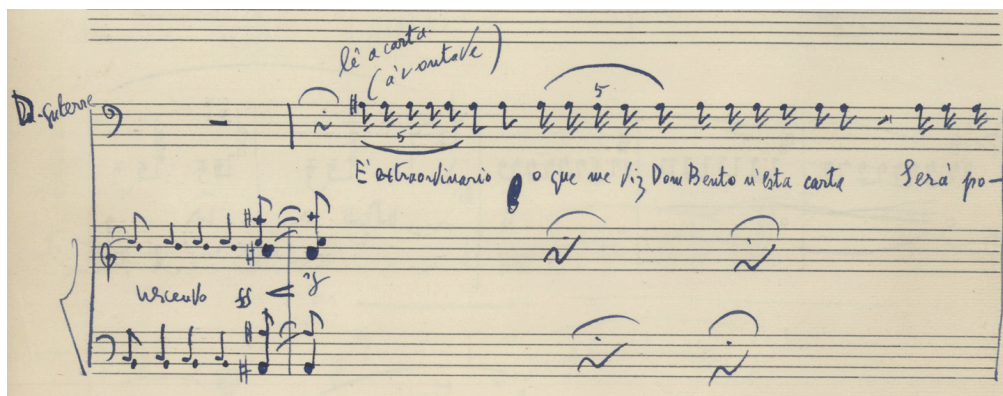 lê a carta.
(à vontade)
D. Guterre
5
5
E' extraordinario o que me diz Dom Bento n'esta carta Será po-
crescendo ff